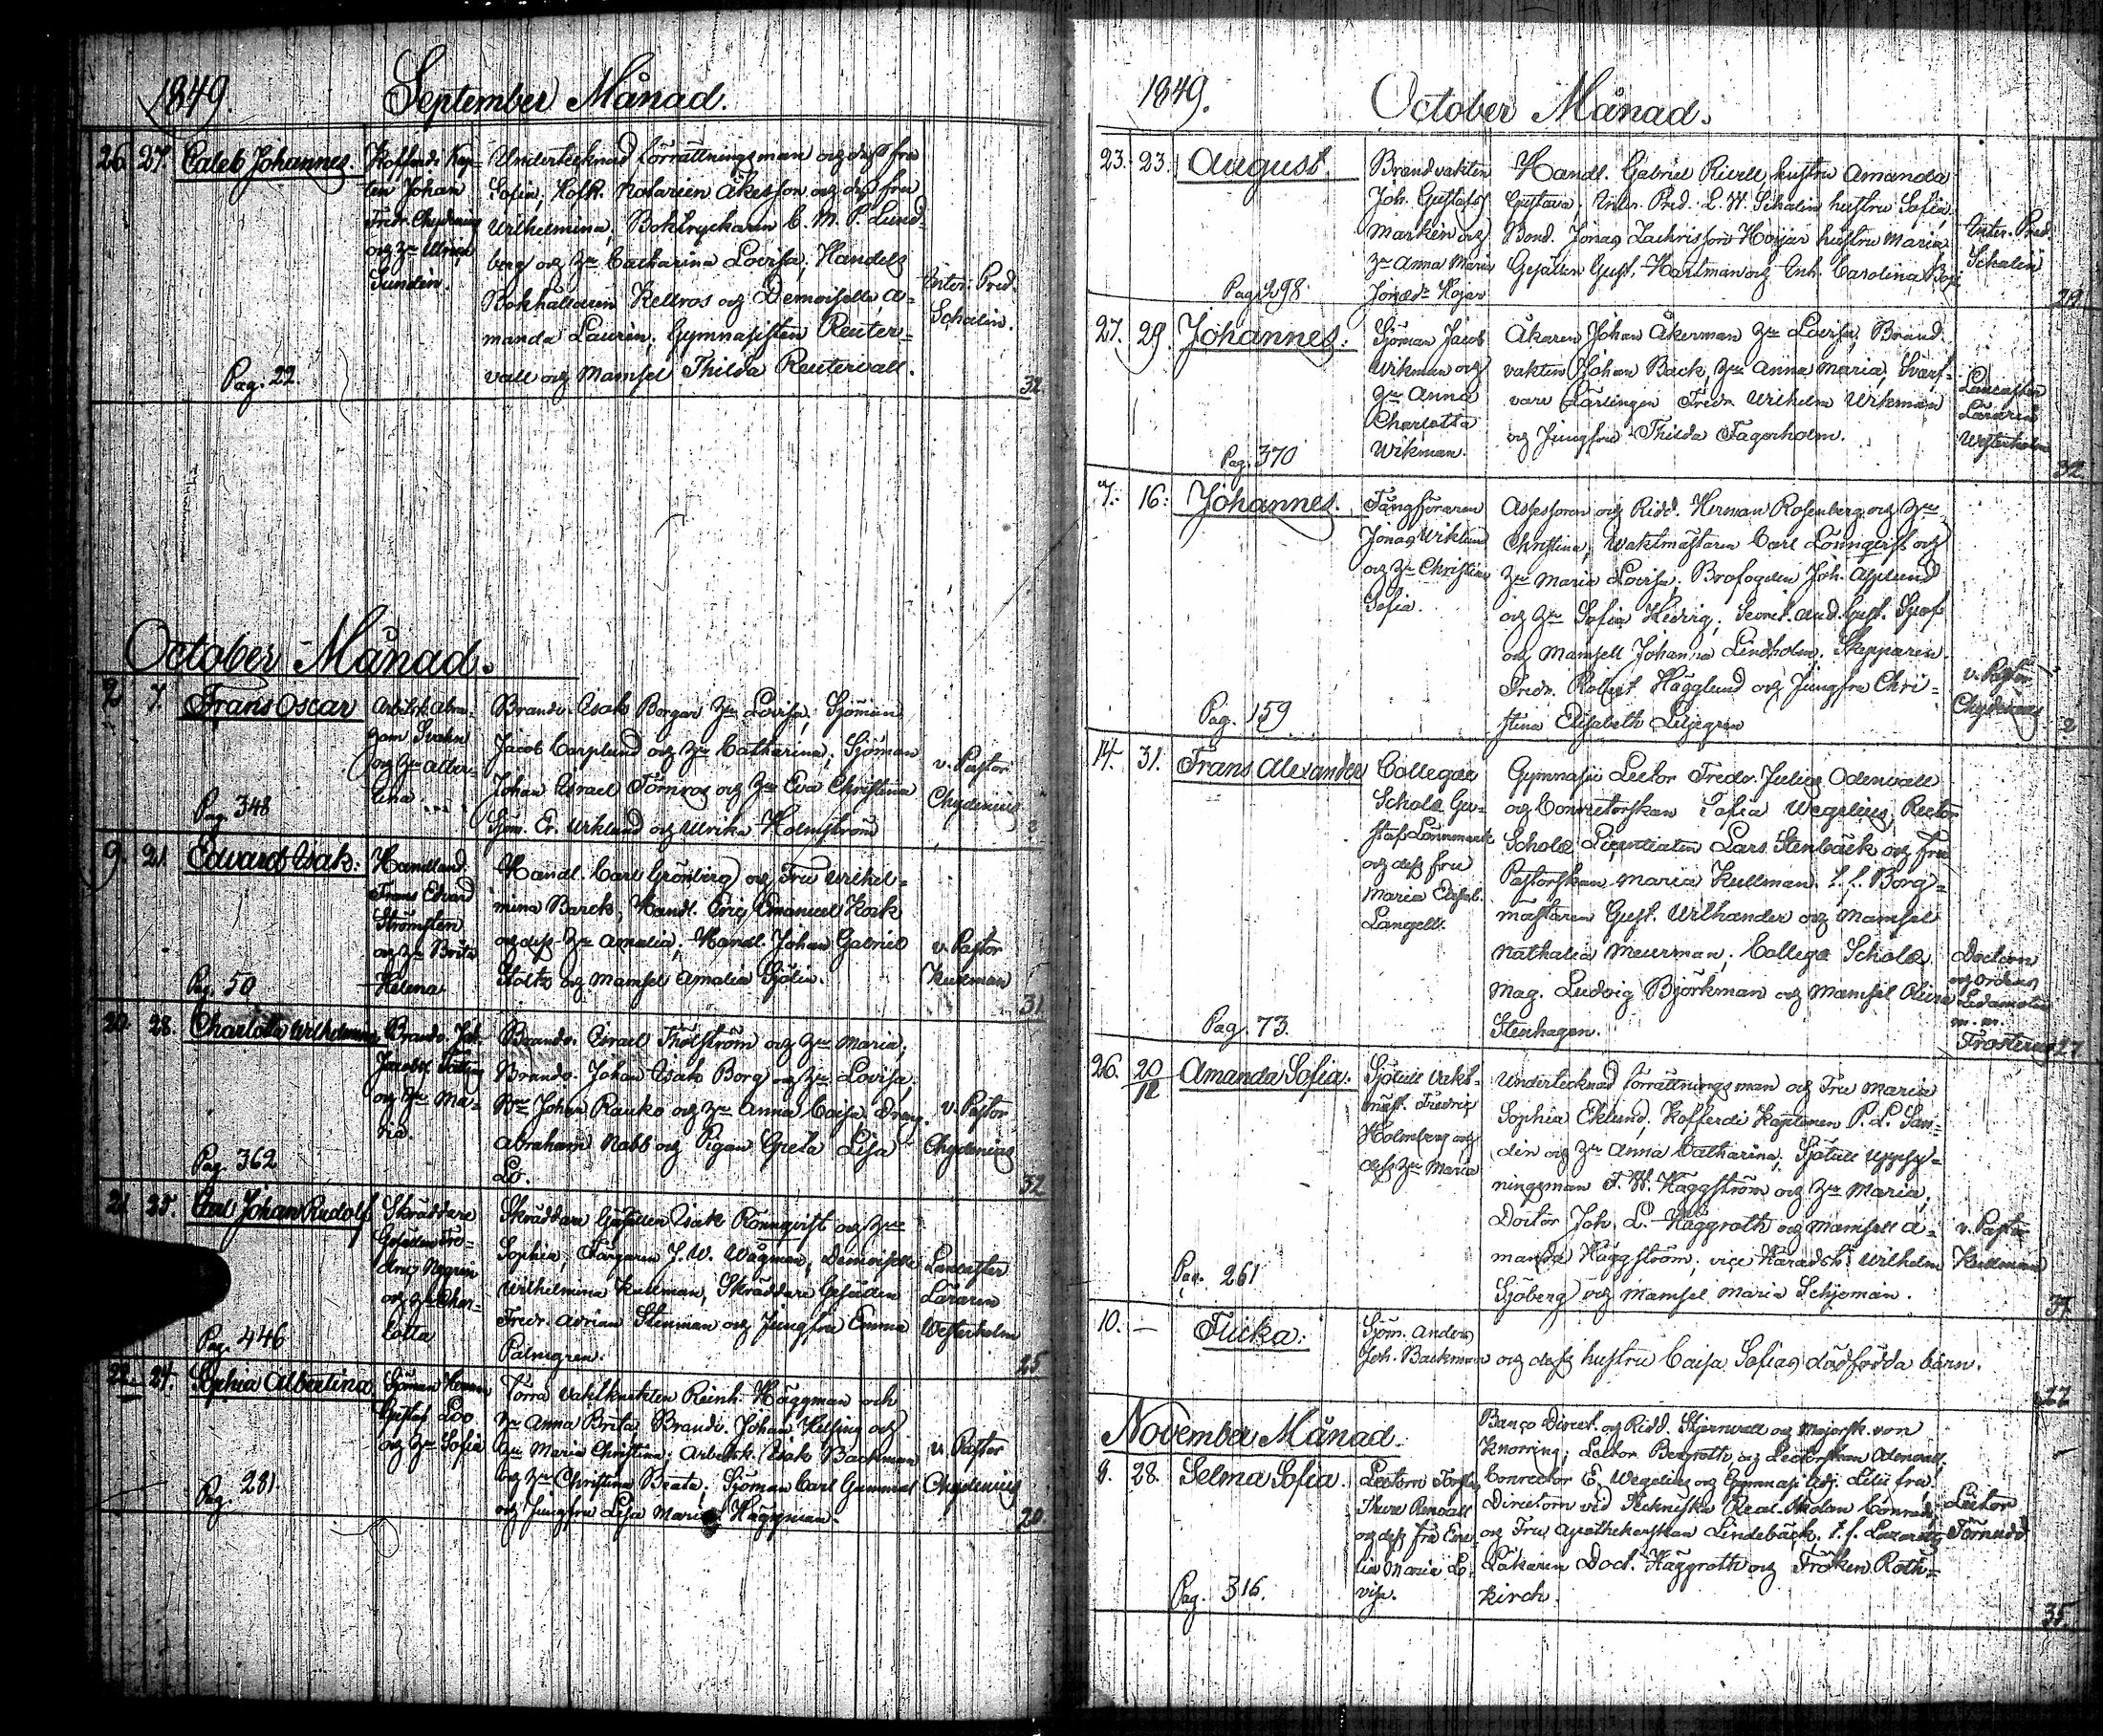 1849. September Månad.
26. 27. Caleb Johannes.
Kofferdi Kap-
ten Johan
Fredr. Chydenius
och Hu Ulrica
Sundén.
Undertecknad Förrättningsman och dess fru
Sofia, Hofr. Notarien Åkesson och dess fru
Wilhelmina, Boktryckaren C. M. P. Lund-
berg och Hu Catharina Lovisa; Handels
Bokhållaren Hellros och Demoiselle A-
manda Laurin, Gymnasisten Reuter-
vall och Mamsel Thilda Reutervall.
Inter. Pred.
Schalin.
Pag. 22.
32
October Månad.
2 7. Frans Oscar
Arbitsk. Abra-
ham Svahn
och Hu Alber-
tina
Brandv. Isak Borgar Hu Lovisa, Sjöman
Jacob Carplund och Hu Catharina; Sjöman
Johan Israel Törnros och Hu Eva Christina
Sjöm. Er. Wiklund och Ulrika Holmström
v. Pastor
Chydenius
Pag. 348
9. 21 Edvard Isak.
Handland.
Frans Edvard
Strömsten
och Hu Brita
Helena
Handl. Carl Grönberg och Fru Wilhel-
mina Barck, Handl. Eric Emanuel Kock
och dess Hu Amalia; Handl. Johan Gabriel
Stoltz och Mamsel Amalia Sjölin.
v. Pastor
Kullman
Pag. 50
31
20. 28. Charlotta Wilhelmina
Brandv. Joh.
Jacobss.
och Hu Ma-
ria.
Brandv. Israel Thölström och Hu Maria;
Brandv. Johan Isak Borg och Hu Lovisa,
Johan Rauko och Hu Anna Caisa. Dreng.
Abraham Nabb och Pigan Greta Lisa
Lo.
v. Pastor
Chydenius
Pag. 362
32
21 25. Carl Johan Rudolf
Skräddare
Gesällen Fre-
dric Negrin
och Hu Char-
lotta
Skräddare Gesällen Isak Rönnqvist och Hu
Sophia; Färgaren J. W. Wägman, Demoiselle
Wilhelmina Kullman, Skräddare Gesällen
Fredr. Adrian Stenman och Jungfru Emma
Palmgren.
Lancaster
Läraren
Westerholm
Pag. 446
25
22. 24. Sophia Albertina
Sjöman Herman
Gustaf Loo
och Hu Sofia
Förra Vaktknekten Reinh. Häggman och
Hu Anna Brita, Brandv. Johan Helsing och
Hu Maria Christina; Arbetsk. Isak Backman
och Hu Christina Beata; Sjöman Carl Gammal
och Jungfru Lisa Maria Häggman.
v. Pastor
Chydenius
Pag. 281
20
1849. October Månad.
23. 23. August.
Brandvakten
Joh. Gustafss
Markén och
Hu Anna Maria
Jonædr Hojar
Handl. Gabriel Rivell hustru Amanda
Gustava; Inter. Pred. L. W. Schalin hustru Sofia,
Bond. Jonas Zachrisson Hojar hustru Maria.
Gesällen Gust. Hartman och Enk. Carolina
Inter. Pred.
Schalin
Pag. 298
29
27. 29. Johannes.
Sjöman Jacob
Wikman och
Hu Anna
Charlotta
Wikman.
Åkaren Johan Åkerman Hu Lovisa, Brand-
vakten Johan Back, Hu Anna Maria, Svarf-
vare Lärlingen Fredr. Wilhelm Wikman
och Jungfru Thilda Fagerholm.
Lancaster
Läraren
Westerholm
Pag. 370
32
7. 16. Johannes.
Fångföraren
Jonas Wiklund
och Hu Christina
Sofia.
Assessoren och Ridd. Herman Rosenberg och Hu
Christina, Waktmästaren Carl Lönnqvist och
Hu Maria Lovisa. Brofogden Joh. Asplund
och Hu Sofia Hedvig; Secret. and. Gust. Graf
och Mamsell Johanna Lindholm. Skepparen
Fredr. Robert Hägglund och Jungfru Chri-
stina Elisabeth Liljegren
v. Pastor
Chydenius
Pag. 159
2
14. 31. Frans Alexander
Collegæ
Scholæ Gu-
staf Lönnmark
och dess fru
Maria Elisab.
Langell.
Gymnasii Lector Fredr. Julius Odenvall
och Conrectorskan Sofia Wegelius; Rector
Scholæ Licentiaten Lars Stenbäck och fru
Pastorskan Maria Kullman. t. f. Borg-
mästaren Gust. Withander och Mamsel
Nathalia Meurman; Collega Scholæ
Mag. Ludvig Björkman och Mamsel Alina
Stenhagen.
Doctorn
och Ordens
Ledamoten
m. m.
Frosterus
Pag. 73.
27
26. 20/12 Amanda Sofia.
Sjötull Vakt-
mäst. Fredric
Holmberg och
dess Hu Maria
Undertecknad Förrättningsman och Fru Maria
Sophia Eklund, Kofferdi Kaptenen P. L. San-
din och Hu Anna Catharina, Sjötull Uppsy-
ningsman F. W. Häggström och Hu Maria,
Doctor Joh. L. Häggroth och Mamsell A-
manda Häggström; vice Häradsh. Wilhelm
Sjöberg och Mamsel Maria Schjöman.
v. Pastor
Kullman
Pag. 261
37.
10. — Flicka.
Sjöm. Anders
Joh. Backman och dess hustru Caisa Sofias dödfödda barn.
27
November Månad.
9. 28. Selma Sofia.
Lectorn
Thure Renvall
och dess fru Eme-
lia Maria Lo-
visa.
Banco Direct. och Ridd. Stjernvall och Majorsk. von
Knorring; Lector Bergroth och Lectorskan Odenvall;
Conrector E. Wegelius och Gymnasi Adj. Lilii fru.
Directorn vid Tekniska Real Skolan Conrad
och Fru Apothekerskan Lindebäck, t. f. Lazaretts
Läkaren Doct. Häggroth och Fröken Roth-
kirch.
Lector
Törnudd
Pag. 316.
35.